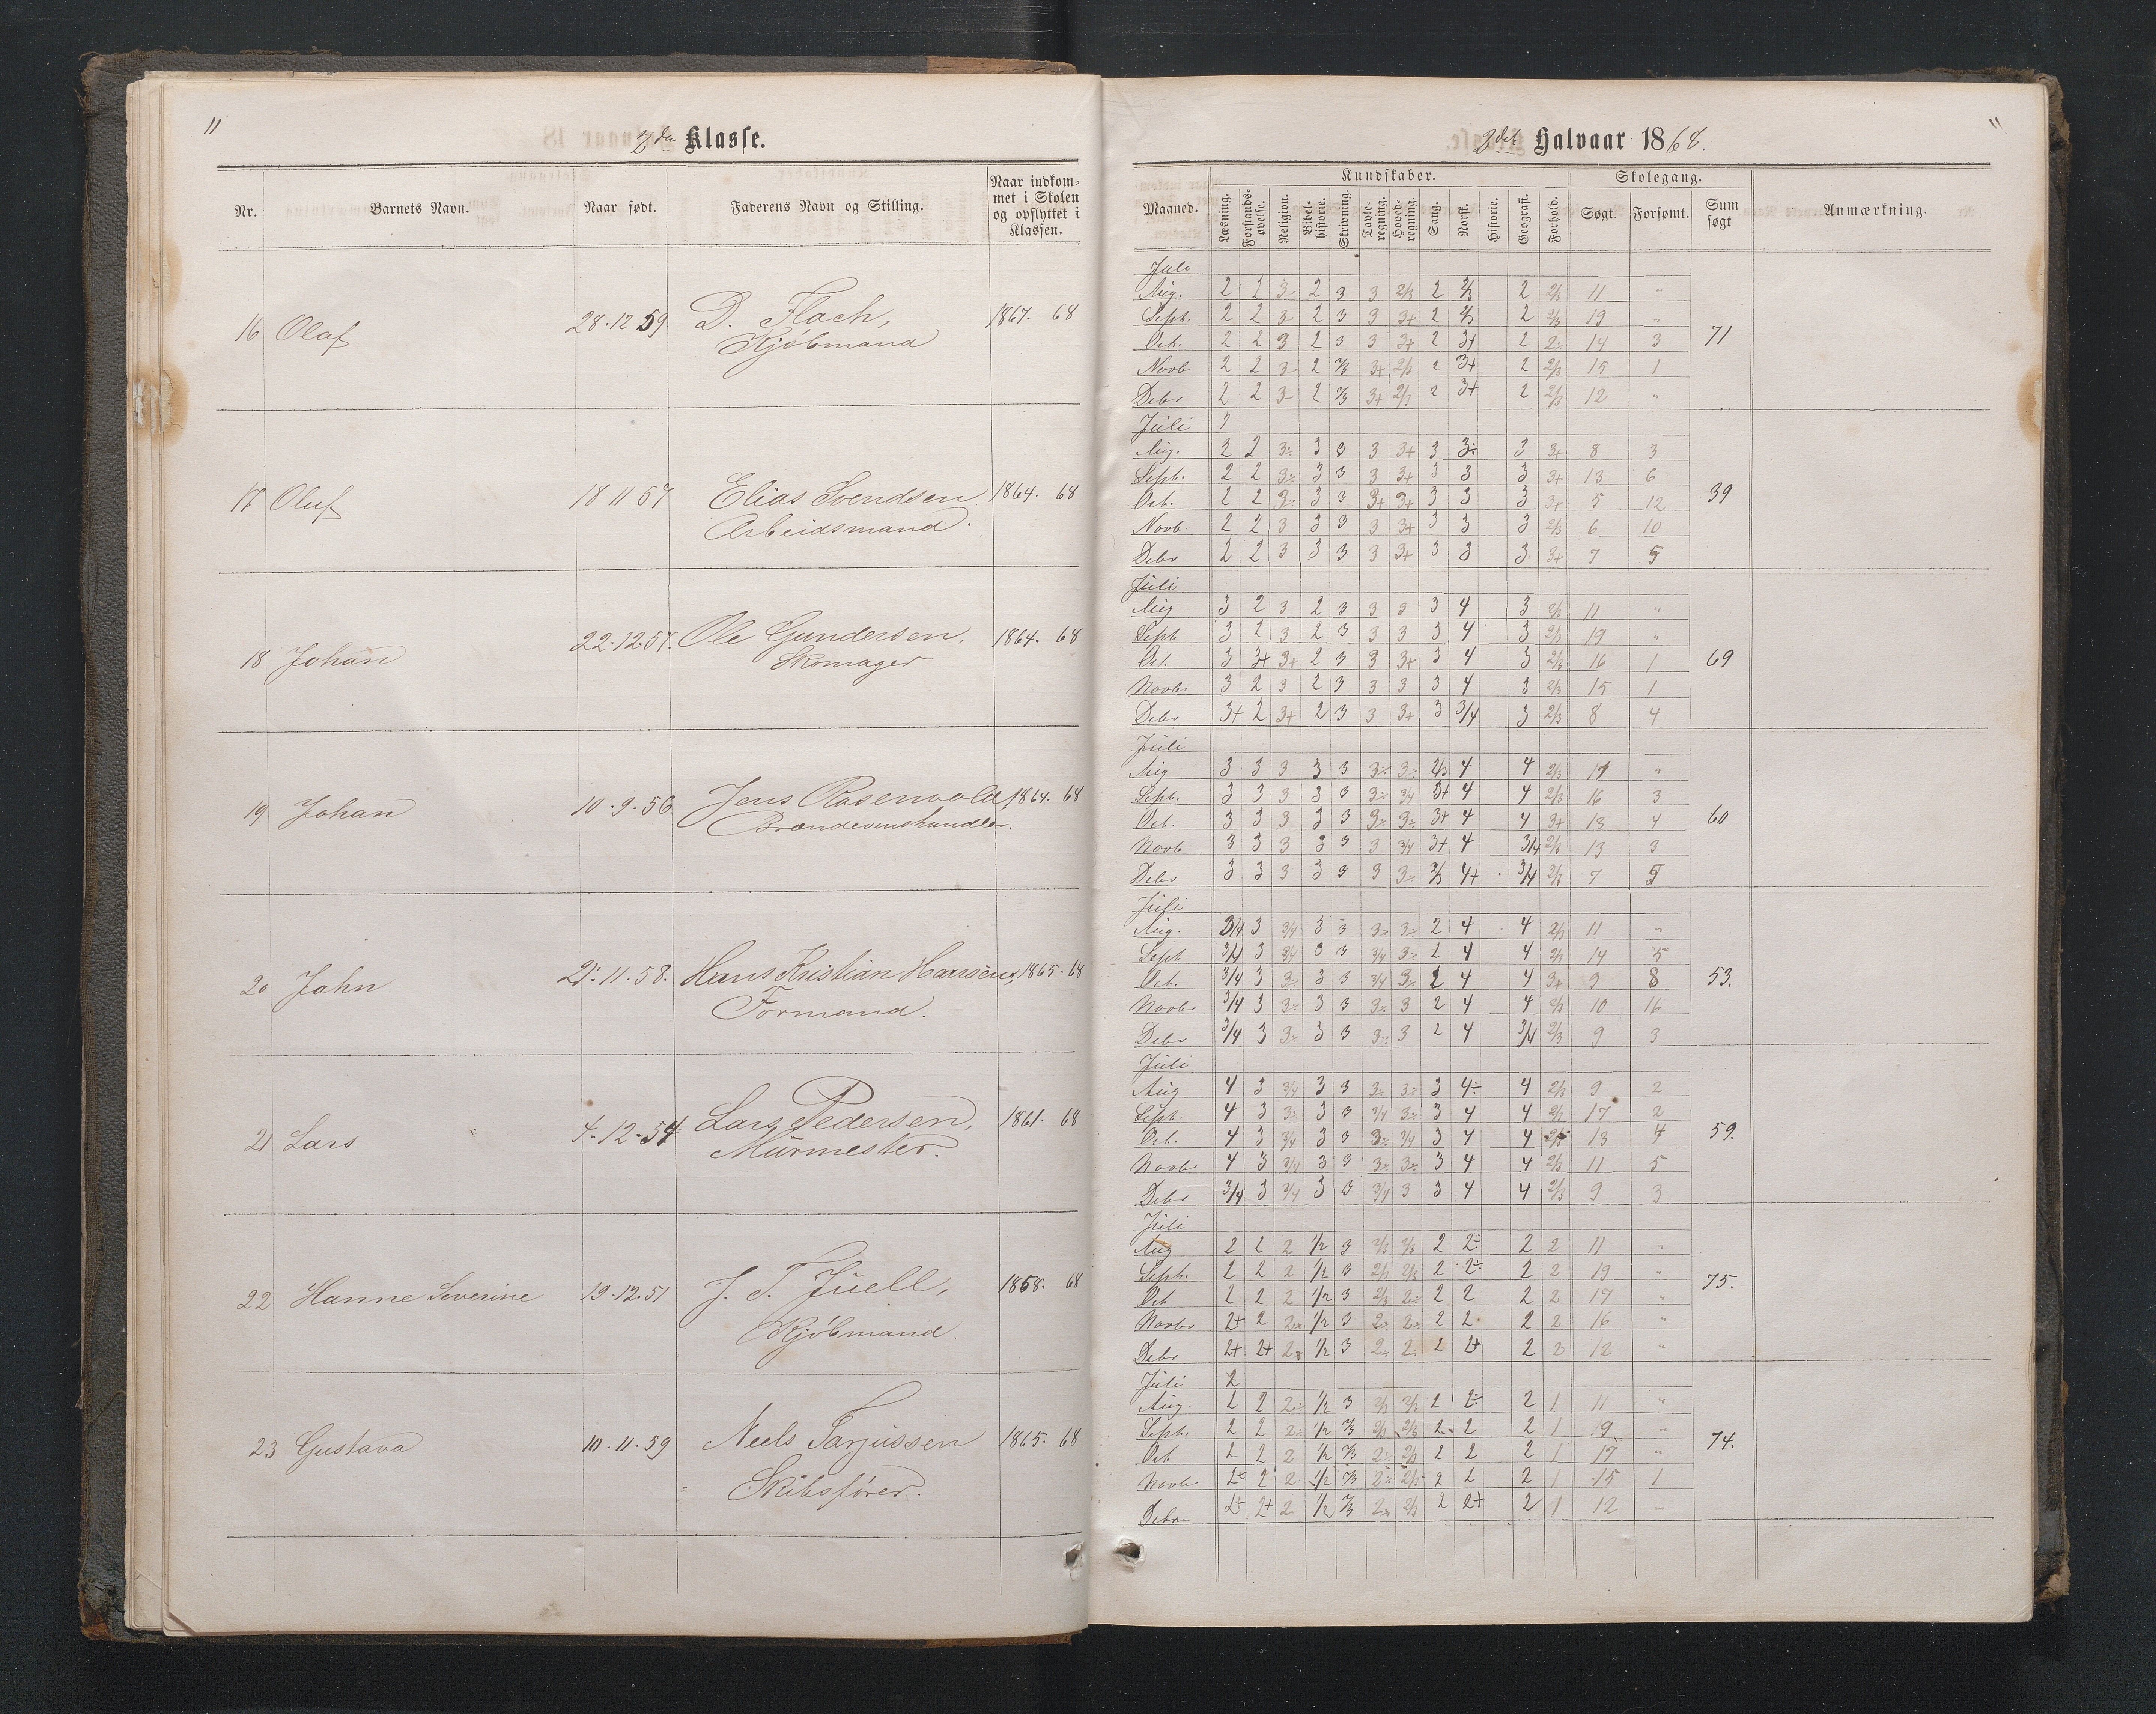 11
2den Klasse.
Nr. Barnets Navn. Naar født. Faderens Navn og Stilling. Naar indkommet i Skolen og opflyttet i Klassen.
16 Olaf 28.12 59 D. Flach, 1867. 68
Kjøbmand
17 Oluf 18 11 57 Elias Svendsen 1864. 68
Arbeidsmand.
18 Johan 22.12.57. Ole Gundersen. 1864. 68
Skomager
19 Johan 10.9.56 Jens Rosenvold, 1864. 68
Brændevinshandler.
20 John 21.11.58. Hans Kristian 1865. 68
Formand.
21 Lars 4.12.54 Lars Pedersen, 1861. 68
Murmester.
22 Hanne Severine 19.12.57 J. T. Juell, 1868. 68
Kjøbmand.
23 Gustava 10.11.59 Neels Tarjussen 1865. 68
Skibsfører.
11
2det Halvaar 1868.
Kundskaber. Skolegang.
Maaned. Læsning. Forstandsøvelse. Religion. Bibelhistorie. Skrivning. Tavleregning. Hovedregning. Sang. Norsk. Historie. Geografi. Forhold. Søgt. Forsømt. Sum søgt Anmærkning.
Juli
Aug. 2 2 3 2 3 3 2/3 2 2/3 2 2/3 11 "
Septr. 2 2 3 2 3 3 3+ 2 2/3 2 2/3 19 "
Oct. 2 2 3 2 3 3 3+ 2 3+ 2 2÷ 14 3 71
Novb 2 2 3 2 2/3 3+ 2/3 2 3+ 2 2/3 15 1
Debr 2 2 3 2 2/3 3+ 2/3 2 3+ 2 2/3 12 "
Juli
Aug. 2 2 3÷ 3 3 3 3+ 3 3÷ 3 3+ 8 3
Septr. 2 2 3÷ 3 3 3 3+ 3 3 3 3+ 13 6
Oct. 2 2 3÷ 3 3 3+ 3+ 3 3 3 3+ 5 12 39
Novb 2 2 3 3 3 3 3+ 3 3 3 2/3 6 10
Debr 2 2 3 3 3 3 3+ 3 3 3 3+ 7 5
Juli
Aug 3 2 3 2 3 3 3 3 4 3 2/3 11 "
Sept 3 2 3 2 3 3 3 3 4 3 2/3 19 "
Oct. 3 3+ 3+ 2 3 3 3+ 3 4 3 2/3 16 1 69
Novbr 3 2 3 2 3 3 3 3 4 3 2/3 15 1
Debr 3+ 2 3+ 2 3 3 3+ 3 3/4 3 2/3 8 4
Juli
Aug 3 3 3 3 3 3÷ 3÷ 2/3 4 4 2/3 11 "
Septr. 3 3 3 3 3 3÷ 3/4 3+ 4 4 2/3 16 3
Oct. 3 3 3 3 3 3÷ 3÷ 3+ 4 4 3+ 13 4 60
Novb 3 3 3 3 3 3 3/4 3+ 4 3/4 2/3 13 3
Debr 3 3 3 3 3 3 3÷ 2/3 4+ 3/4 2/3 7 5
Juli
Aug. 3/4 3 3/4 3 3 3÷ 3÷ 2 4 4 2/3 11 "
Sept 3/4 3 3/4 3 3 3/4 3÷ 2 4 4 2/3 14 5
Oct. 3/4 3 3÷ 3 3 3/4 3÷ 2 4 4 3+ 9 8 53.
Novbr 3/4 3 3÷ 3 3 3÷ 3 2 4 4 2/3 10 16
Debr 3/4 3 3÷ 3 3 3÷ 3 2 4 3/4 2/3 9 3
Juli
Aug 4 3 3/4 3 3 3÷ 3÷ 3 4÷ 4 2/3 9 2
Septr. 4 3 3÷ 3 3 3/4 3÷ 3 4 4 2/3 17 2
Oct. 4 3 3/4 3 3 3÷ 3/4 3 4 4 2/3 13 4 59.
Novbr 4 3 3/4 3 3 3÷ 3÷ 3 4 4 2/3 11 5
Debr 3/4 3 3/4 3 3 3/4 3 3 4 4 2/3 9 3
Juli
Aug 2 2 2 1/2 3 2/3 2/3 2 2÷ 2 2 11 "
Septr. 2 2 2 1/2 3 2/3 2/3 2 2÷ 2 2 19 "
Oct 2 2 2 1/2 3 2/3 2÷ 2 2 2 2 17 " 75.
Novbr 2+ 2 2÷ 1/2 3 2÷ 2÷ 2 2 2 2 16 "
Debr 2+ 2+ 2÷ 1/2 3 2÷ 2÷ 2 2+ 2 2 12 "
Juli 2
Aug. 2 2 2÷ 1/2 3 2/3 2/3 2 2÷ 2 1 11 "
Septr. 2 2 2÷ 1/2 2/3 2/3 2/3 2 2 2 1 19 "
Oct 2 2 2 1/2 2/3 2÷ 2/3 2 2 2 1 17 " 74.
Novbr 2÷ 2 2 1/2 2/3 2÷ 2/3 2 2 2 1 15 1
Debr 2+ 2+ 2 1/2 2/3 2÷ 2/3 2 2+ 2 1 12 "